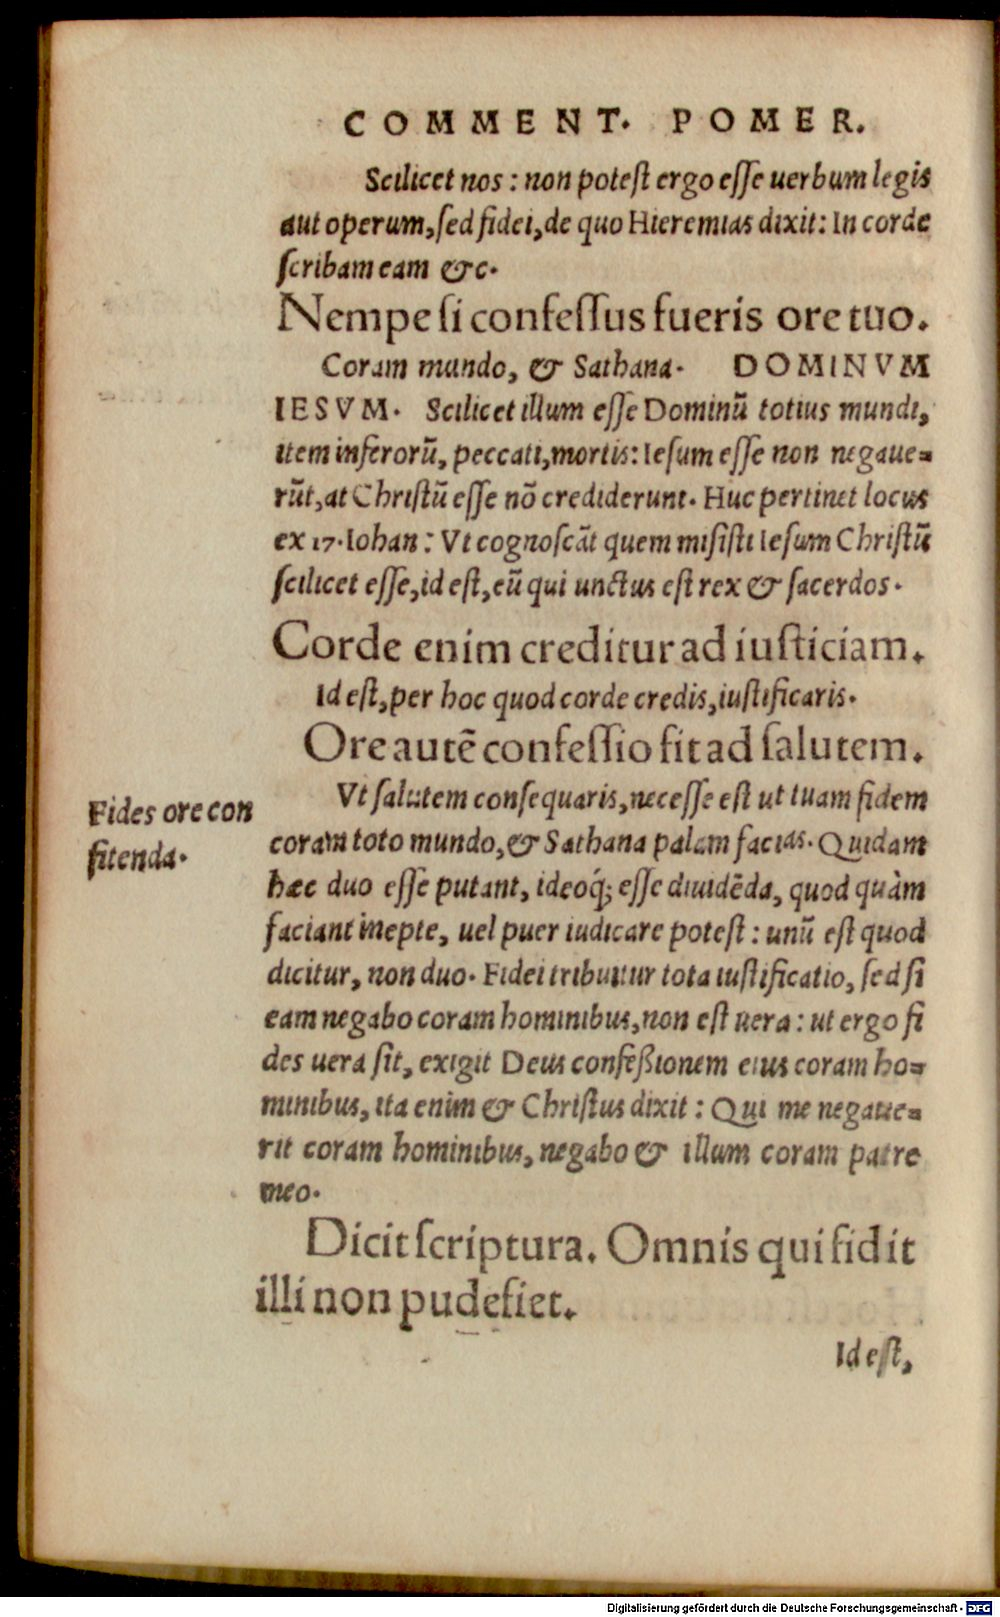 COMMENT. POMER.
Scilicet nos: non potest ergo esse uerbum legis
aut operum, sed fidei, de quo Hieremias dixit: In corde
scribam eam &c.
Nempe si confessus fueris ore tuo.
Coram mundo, & Sathana. DOMINVM
IESVM. Scilicet illum esse Dominũ totius mundi,
item inferorũ, peccati, mortis: Iesum esse non negaue=
rũt, at Christũ esse nõ crediderunt. Huc pertinet locus
ex 17. Iohan: Vt cognoscãt quem misisti Iesum Christũ
scilicet esse, id est, eũ qui unctus est rex & sacerdos.
Corde enim creditur ad iusticiam.
Id est, per hoc quod corde credis, iustificaris.
Ore autẽ confessio fit ad salutem.
Fides ore con
fitenda.
Vt salutem consequaris, necesse est ut tuam fidem
coram toto mundo, & Sathana palam facias. Quidam
hæc duo esse putant, ideoq́; esse diuidẽda, quod quàm
faciant inepte, uel puer iudicare potest: unũ est quod
dicitur, non duo. Fidei tribuitur tota iustificatio, sed si
eam negabo coram hominibus, non est uera: ut ergo fi
des uera sit, exigit Deus confeßionem eius coram ho=
minibus, ita enim & Christus dixit: Qui me negaue=
rit coram hominibus, negabo & illum coram patre
meo.
Dicit scriptura. Omnis qui fidit
illi non pudefiet.
Id est,
Digitalisierung gefördert durch die Deutsche Forschungsgemeinschaft - DFG